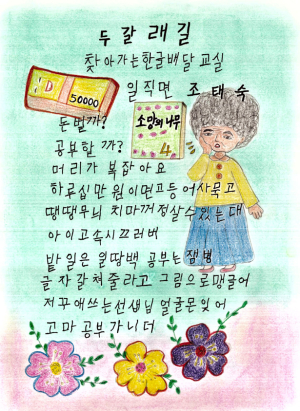 두갈래길
찾아가는한글배달교실
일직면 조태숙
50000
돈벌까?
소망의 나무
4
공부할까?
머리가 복잡아요
하루십만원이면고등어사묵고
땡땡무늬 치마꺼정살수있는대
아이고속시끄러버
밭일은 월땅백 공부는 잼병
글자갈쳐줄라고 그림으로맹글어
저꾸애쓰는선생님 얼굴못잊어
고마 공부가니더